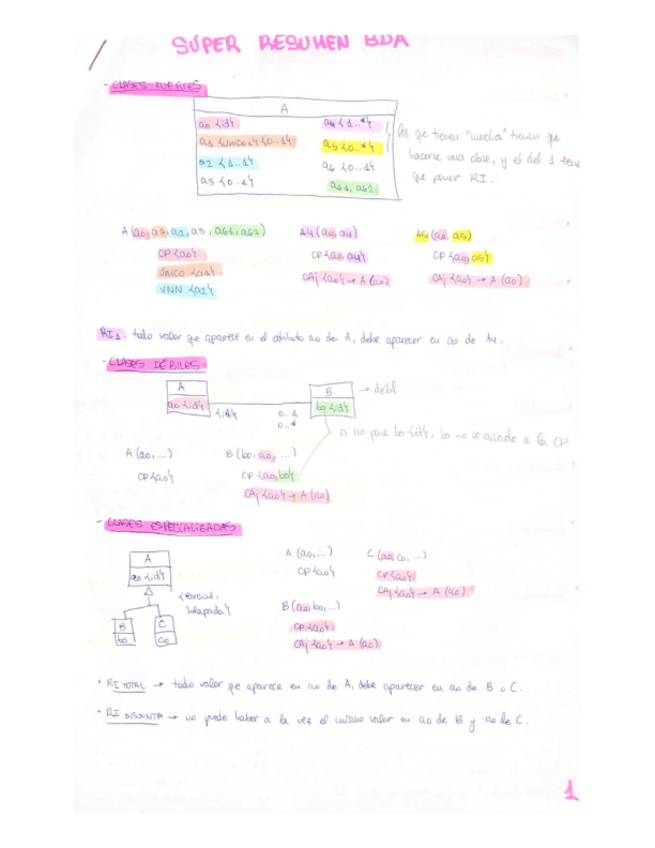 SUPER RESUMEN BDA
- CLASES FUERTES
A
a0 {id}
a4 {1..*}
a1 {único1} {0..1}
a5 {0..*}
a2 {1..1}
a6 {0..1}
a3 {0..1}
a61, a62
los que tienen "muchos" tienen que
hacerse una clase, y el del 1 tiene
que poner RI.
A (a0, a1, a2, a3, a61, a62)
A4 (a0, a4)
A5 (a0, a5)
CP {a0}
CP {a0, a4}
CP {a0, a5}
Único {a1}
CAj {a0} → A (a0)
CAj {a0} → A (a0)
VNN {a2}
RI1: todo valor que aparece en el atributo a0 de A, debe aparecer en a0 de A4.
- CLASES DÉBILES
A
B
→ débil
a0 {id}
{id}
0..1
0..*
b0 {id}
si no pone b0 {id}, b0 no se añade a la CP
A (a0, ...)
B (b0, a0, ...)
CP {a0}
CP {a0, b0}
CAj {a0} → A (a0)
- CLASES ESPECIALIZADAS
A
a0 {id}
{Parcial,
Solapada}
B
b0
C
c0
A (a0, ...)
C (a0, c0, ...)
CP {a0}
CP {a0}
CAj {a0} → A (a0)
B (a0, b0, ...)
CP {a0}
CAj {a0} → A (a0)
• RI TOTAL → todo valor que aparece en a0 de A, debe aparecer en a0 de B o C.
• RI DISJUNTA → no puede haber a la vez el mismo valor en a0 de B y a0 de C.
1